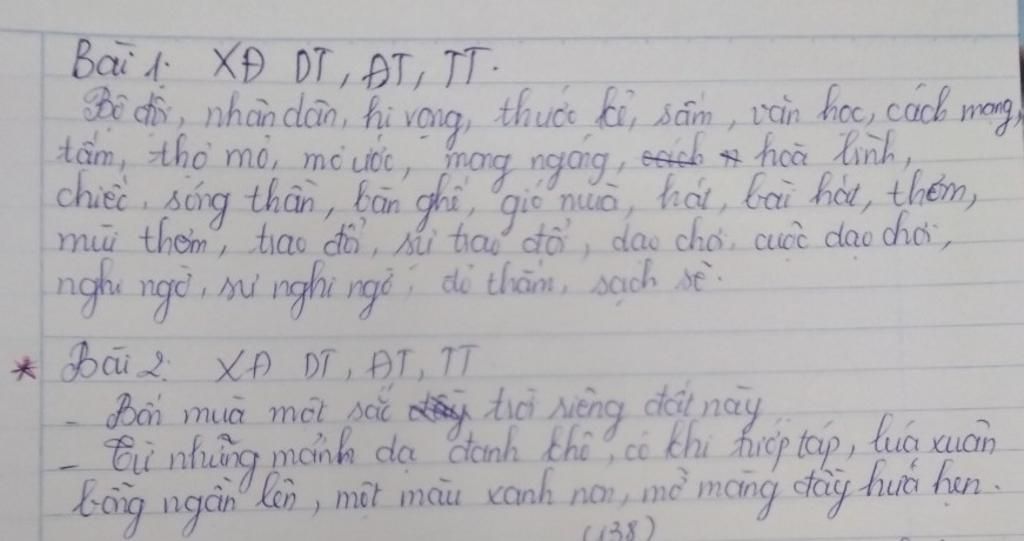 Bài 1: XĐ DT, ĐT, TT.
Bộ đội, nhân dân, hi vọng, thước kẻ, sấm, văn học, cách mạng,
tấm, thợ mỏ, mơ ước, mong ngóng, hoà bình,
chiếc, sóng thần, bàn ghế, gió mùa, hát, bài hát, thơm,
mùi thơm, trao đổi, sự trao đổi, dạo chơi, cuộc dạo chơi,
nghi ngờ, sự nghi ngờ, đỏ thắm, sạch sẽ.
* Bài 2: XĐ DT, ĐT, TT
- Bốn mùa một sắc trời riêng đất này
- Từ những mảnh dạ danh khô, có khi húp táp, lúa xuân
bỗng ngần lên, một màu xanh non, mỡ màng đầy hứa hẹn.
(138)